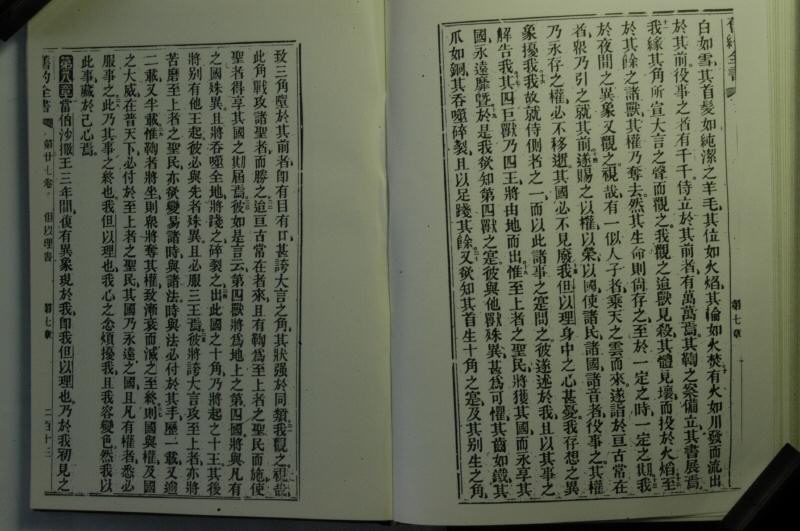 舊約全書
第七章
白如雪其首髮如純潔之羊毛其位如火焰其輪如火焚有火如川發而流出
於其前役事之者有千千侍立於其前者有萬萬焉其鞫之案備立其書展焉
我緣其角所宣大言之聲而觀之我觀之迨獸見殺其體見壞而投於火焰至
於其餘之諸獸其權乃奪去然其生命則尚存之至於一定之時一定之期我
於夜間之異象又觀之視哉有一似人子者乘天之雲而來遂詣於亘古常在
者眾乃引之就其前遂賜之以權以榮以國使諸民諸國諸音者役事之其權
乃永存之權必不移遷其國必不見廢我但以理身中之心甚憂我存想之異
象擾我我故就侍側者之一而以此諸事之寔問之彼遂述於我且以其事之
解告我其四巨獸乃四王將由地而出惟至上者之聖民將獲其國而永享其
國永遠靡暨於是我欲知第四獸之寔彼與他獸殊異甚爲可懼其齒如鐵其
爪如銅其吞噬碎裂且以足踐其餘又欲知其首生十角之寔及其別生之角
致三角墮於其前者卽有目有口甚誇大言之角其狀强於同類我觀之視哉
此角戰攻諸聖者而勝之迨亘古常在者來且有鞫爲至上者之聖民而施使
聖者得享其國之期屆焉彼如是言云第四獸將爲地上之第四國將與凡有
之國殊異且將吞噬全地將踐之碎裂之出此國之十角乃將起之十王其後
將別有他王起彼必與先者殊異且必服三王焉彼將誇大言攻至上者亦將
苦磨至上者之聖民亦欲變易諸時與諸法時與法必付於其手歷一載又逾
二載又半載惟鞫者將坐則衆將奪其權致漸衰而滅之至終則國與權及國
之大威在普天下必付於至上者之聖民其國乃永遠之國且凡有權者悉必
服事之此乃其事之終也我但以理也我心之念煩擾我且我容變色然我以
此事藏於己心焉
第八章當伯沙撒王三年間復有異象現於我卽我但以理也乃於我初見之
舊約全書
第廿七卷
但以理書
第七章
二百十三